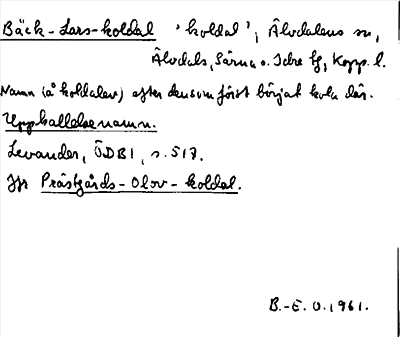 Bäck-Lars-koldal 'koldal', Älvdalens sn,
Älvdals, Särna o. Idre tg, Kopp. l.
Namn (å koldalen) efter den som först börjat kola där.
Uppkallelsenamn.
Levander, ÖDB1, s. 517.
Jfr Prästgårds-Olov-koldal.
B.-E. O. 1961.